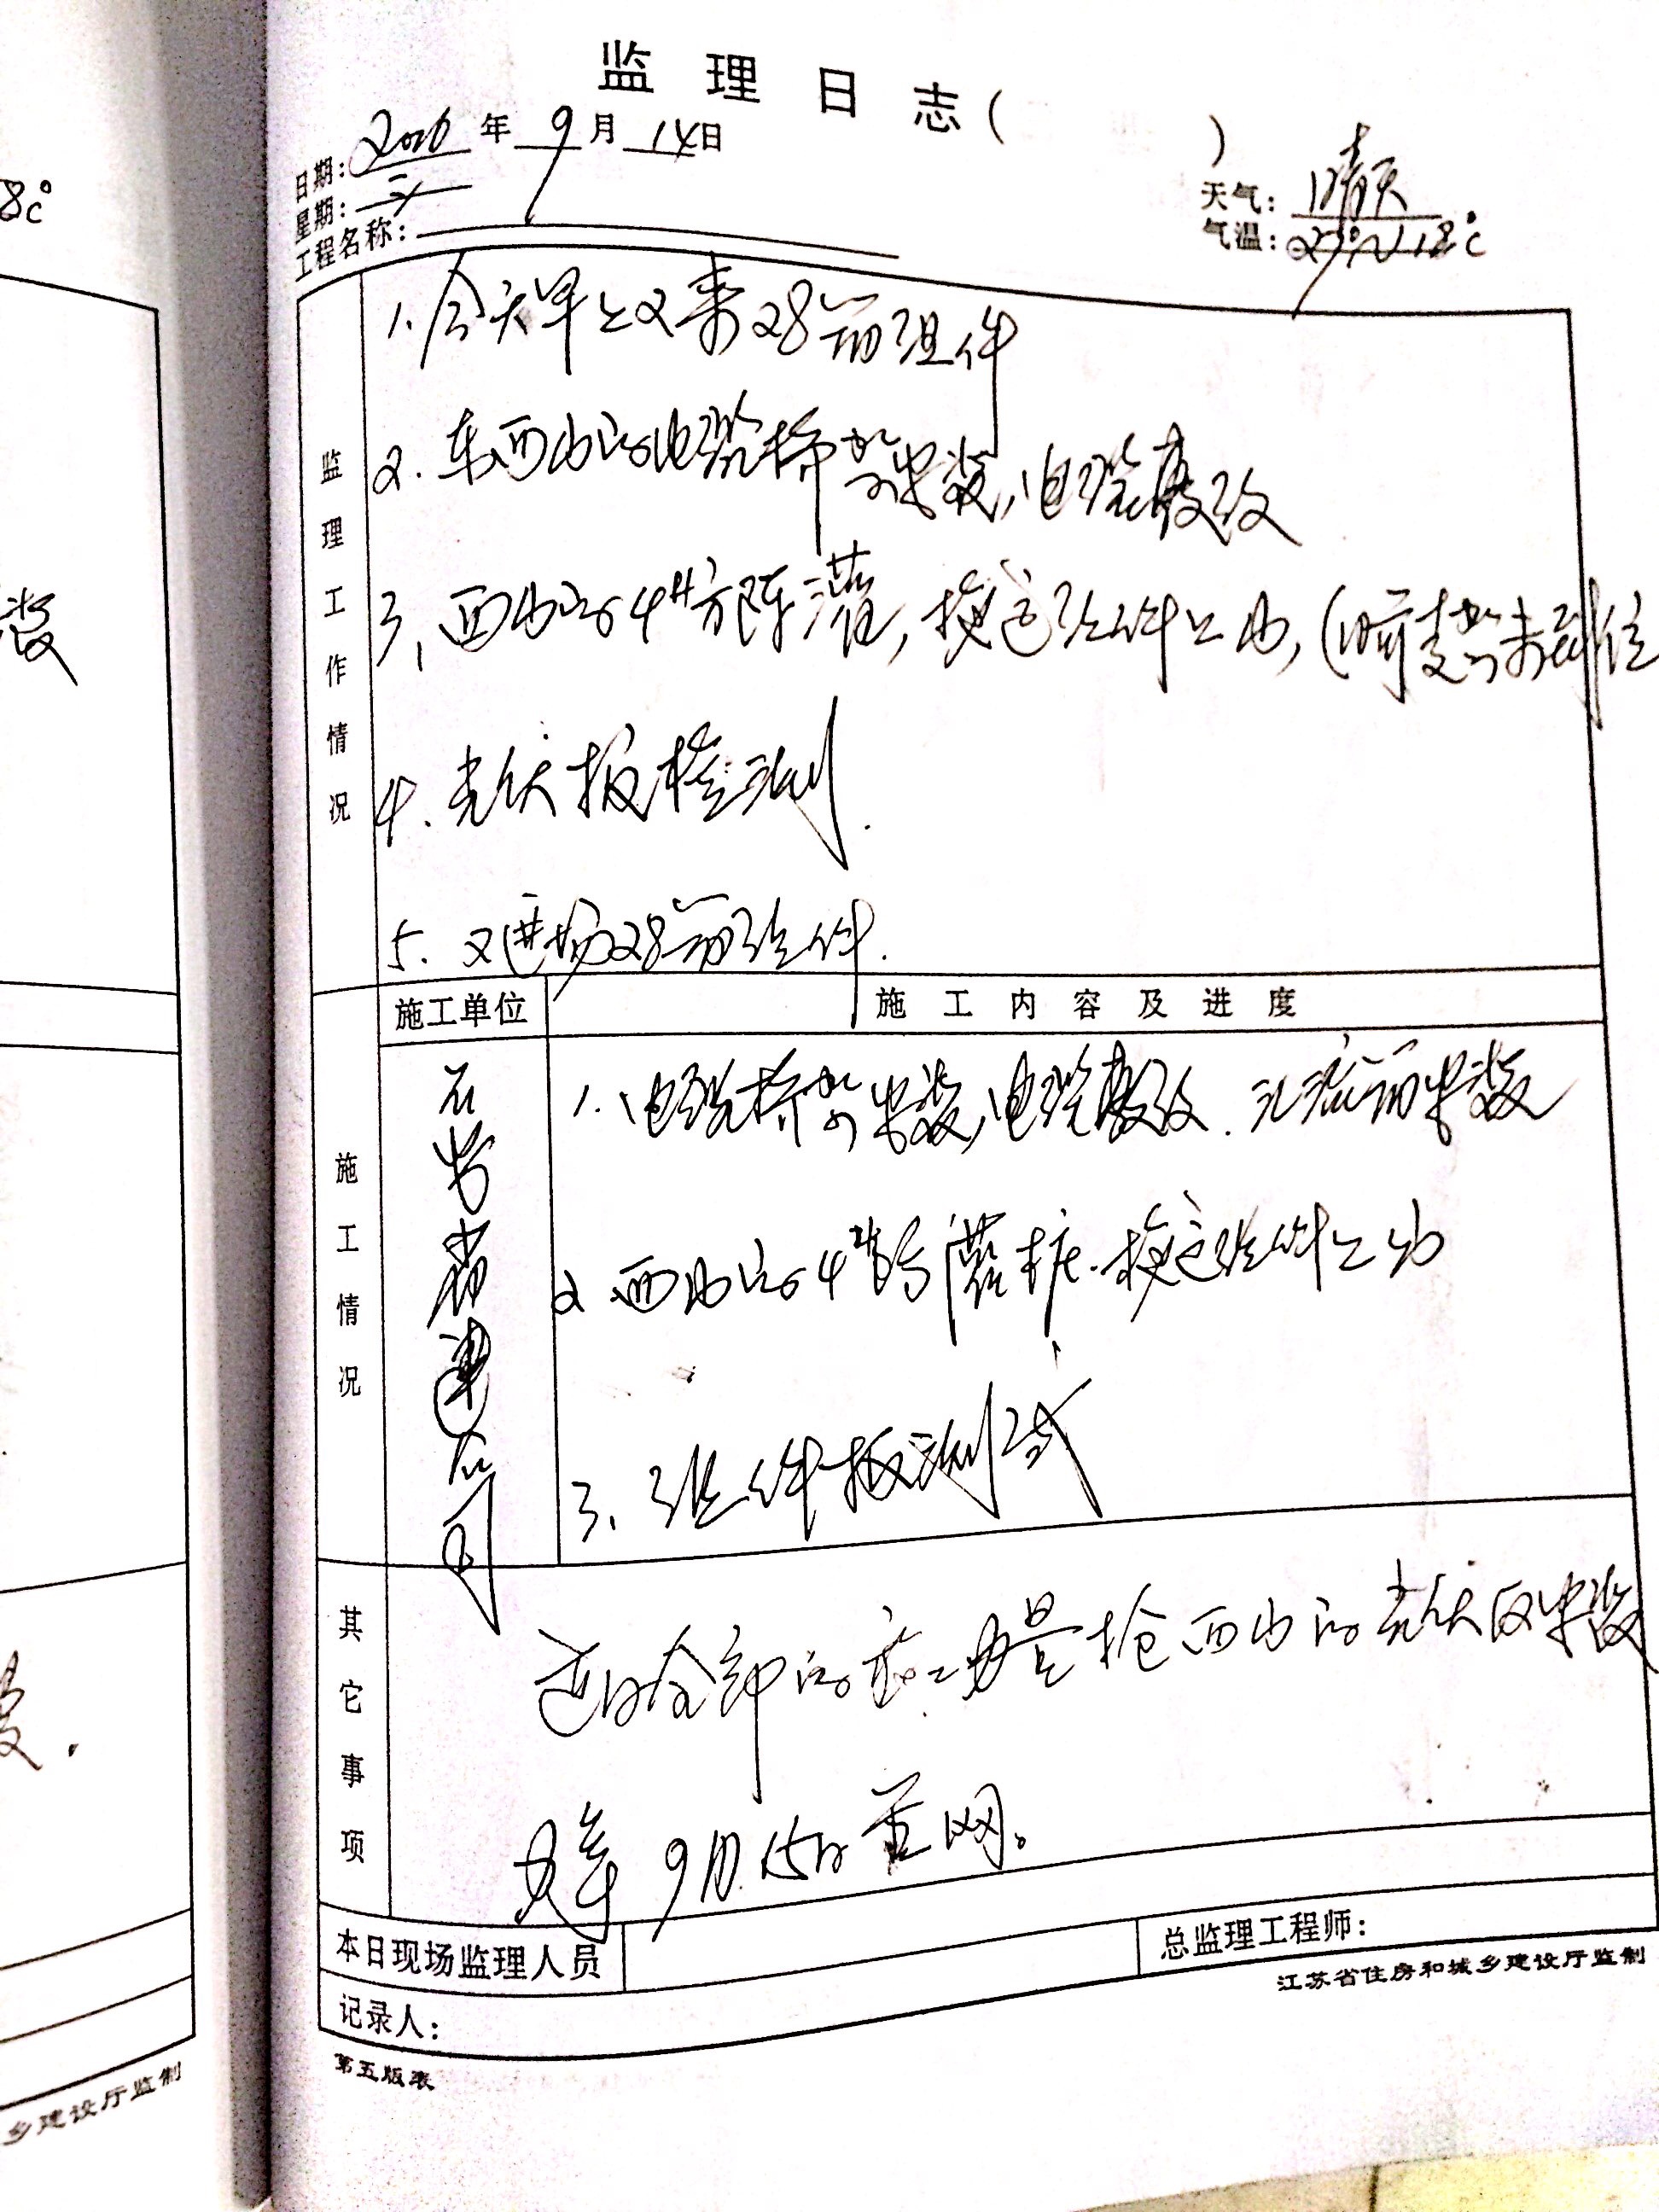 监理日志( )
日期: 2016 年 9 月 14日
星期: 三
天气: 晴天
工程名称:
气温: 27°~18℃
监理工作情况
1. 今天早上又来28箱组件
2. 东西山的电缆桥架安装,电缆敷设
3. 西山的4#方阵灌,搬运组件上山,(目前支架未到位
4. 光伏板检测.
5. 又进场28箱组件.
施工单位 施工内容及进度
施工情况
1. 电缆桥架安装,电缆敷设. 汇流箱安装
2. 西山的4#灌桩.搬运组件上山
3. 组件板测试
公司
其它事项
近日全部的施工力量抢西山的光伏区安装
力争9月.15日并网。
本日现场监理人员
总监理工程师:
记录人:
江苏省住房和城乡建设厅监制
第五版表
8℃
装
乡建设厅监制